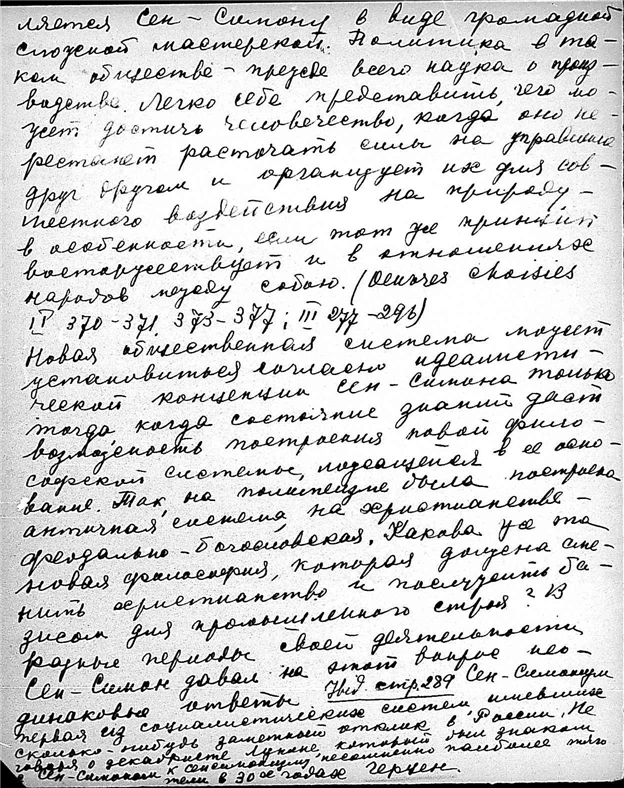 ляется Сен-Симону в виде громадной
сложной мастерской. Политика в та-
ком обществе - прежде всего наука о произ-
водстве. Легко себе представить, чего мо-
жет достичь человечество, когда оно пе-
рестанет расточать силы на управление
друг другом и организует их для сов-
местного воздействия на природу, -
в особенности, если тот же принцип
восторжествует и в отношениях
народов между собою. (Oeuvres choisies
II 370-371, 373-377; III 277-296)
Новая общественная система может
установиться согласно идеалисти-
ческой концепции Сен-Симона только
тогда когда состояние знаний даст
возможность построения новой фило-
софской системы, лежащей в ее осно-
вание. Так, на политеизме была построена
античная система, на христианстве -
феодально-богословская. Какова же та
новая философия, которая должна сме-
нить христианство и послужить ба-
зисом для промышленного строя? В
разные периоды своей деятельности
Сен-Симон давал на этот вопрос нео-
динаковые ответы стр. 289 Сен-Симонизм
первая из социалистических систем имевших
сколько-нибудь заметный отклик в России. Не
говоря о декабристе Лунине, который был знаком
с Сен-Симоном к сенсимонизму, несомненно наиболее тяго
тели в 30х годах Герцен